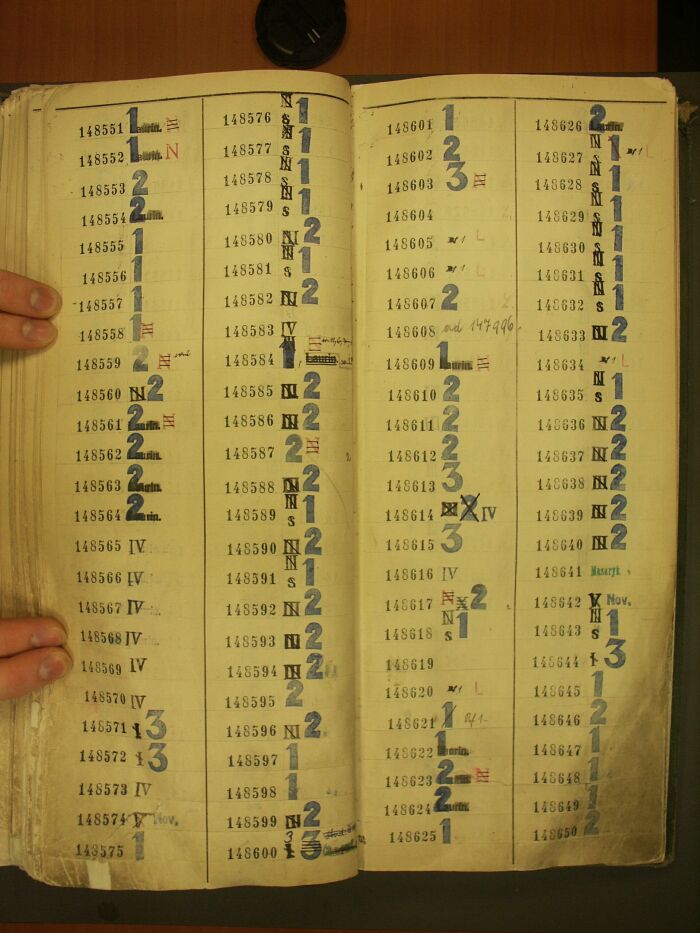 148551 1 Laurin. III
148552 1 Laurin. N
148553 2
148554 2 Laurin.
148555 1
148556 1
148557 1
148558 1 III
148559 2 III
148560 N 2
148561 2 Laurin. III
148562 2 Laurin.
148563 2 Laurin.
148564 2 Laurin.
148565 IV
148566 IV
148567 IV
148568 IV
148569 IV
148570 IV
148571 1 3
148572 1 3
148573 IV
148574 V Nov.
148575 1
148576 N s 1
148577 N s 1
148578 N s 1
148579 N s 1
148580 N 2
148581 N s 1
148582 N 2
148583 IV
148584 1 s, Laurin
148585 N 2
148586 N 2
148587 2 III
148588 N 2
148589 N s 1
148590 N 2
148591 N s 1
148592 N 2
148593 N 2
148594 N 2
148595 2
148596 N 2
148597 1
148598 1
148599 N 2
148600 3 1 3
148601 1
148602 2
148603 3 III
148604
148605 L
148606 L
148607 2
148608 ad 147996.
148609 1 Laurin. III
148610 2
148611 2
148612 2
148613 3
148614 N 2 IV
148615 3
148616 IV
148617 N 2
148618 N s 1
148619
148620 L
148621 1
148622 1 Laurin.
148623 2 Laurin III
148624 2 Laurin.
148625 1
148626 2 Laurin.
148627 N s 1 L
148628 N s 1
148629 N s 1
148630 N s 1
148631 N s 1
148632 N s 1
148633 N 2
148634 L
148635 N s 1
148636 N 2
148637 N 2
148638 N 2
148639 N 2
148640 N 2
148641 Masaryk
148642 V Nov.
148643 N s 1
148644 1 3
148645 1
148646 2
148647 1
148648 1
148649 1
148650 2